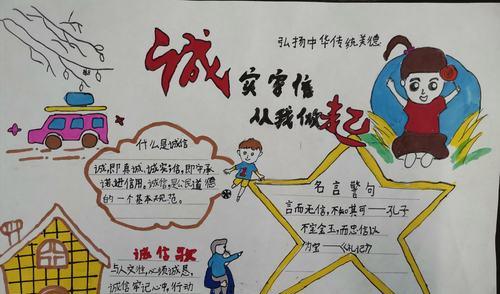 弘扬中华传统美德
诚实守信
从我做起
什么是诚信
诚，即真诚，诚实；信，即守承
诺，进信用。诚信，是公民道德
的一个基本规范。
名言警句
言而无信，不知其可——孔子
不宝金玉，而忠信以
为宝——《礼记》
诚信歌
与人交往，必须诚恳，
诚信牢记心中，行动